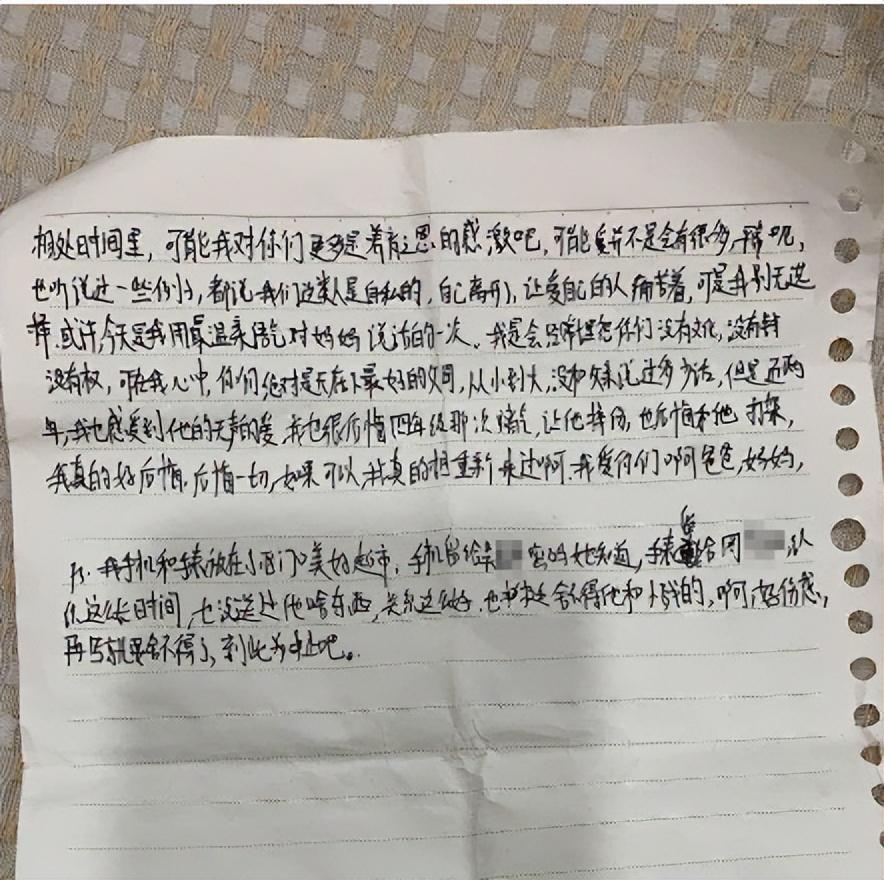 相处时间里，可能我对你们更多是养育之恩的感激吧，可能爱并不是会有很多，呢，
也听说过一些例子，都说我们这类人是自私的，自己离开了，让爱自己的人痛苦着，可是我别无选
择，或许，今天是我用最温柔语气对妈妈说话的一次。我是会经常埋怨你们没有文化，没有钱
没有权，可在我心中，你们绝对是天底下最好的父母，从小到大，没和父亲说过多少话，但是近两
年，我也感受到他的无声的爱，我也很后悔四年级那次赌气，让他摔伤，也后悔和他打架，
我真的好后悔，后悔一切，如果可以，我真的想重新来过啊，我爱你们啊爸爸，妈妈，
Ps. 我手机和手表放在小区门口美好超市，手机留给 密码她知道，手表留给周
这么长时间，也没送过他啥东西，关系这么好，也挺舍不得他和的，啊，好伤感，
再写就要舍不得了，到此为止吧。